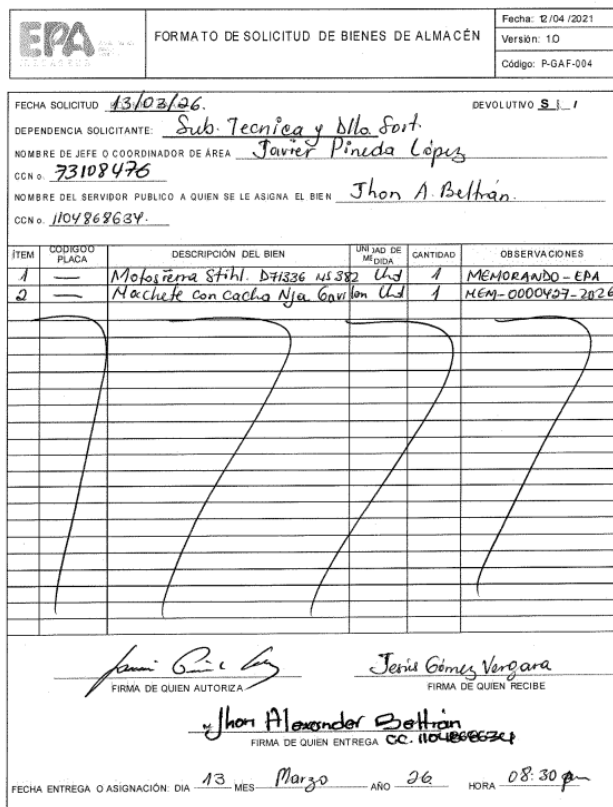 EPA
FORMATO DE SOLICITUD DE BIENES DE ALMACÉN
Fecha: 12/04/2021
Versión: 1.0
Código: P-GAF-004
FECHA SOLICITUD 13/03/26. DEVOLUTIVO S I
DEPENDENCIA SOLICITANTE: Sub. Tecnica y Dllo. Sost.
NOMBRE DE JEFE O COORDINADOR DE ÁREA Javier Pineda López
CC No. 73108476
NOMBRE DEL SERVIDOR PUBLICO A QUIEN SE LE ASIGNA EL BIEN Jhon A. Beltrán.
CC No. 1104868634.
ÍTEM CODIGO O PLACA DESCRIPCIÓN DEL BIEN UNIDAD DE MEDIDA CANTIDAD OBSERVACIONES
1 — Motosierra Stihl. D71336 MS382 Und 1 MEMORANDO-EPA
2 — Machete con cacha Nja Gavilan Und 1 MEM-0000427-2026
FIRMA DE QUIEN AUTORIZA
Jesús Gómez Vergara
FIRMA DE QUIEN RECIBE
Jhon Alexander Beltrán
FIRMA DE QUIEN ENTREGA CC. 1104868634
FECHA ENTREGA O ASIGNACIÓN: DIA 13 MES Marzo AÑO 26 HORA 08:30 pm